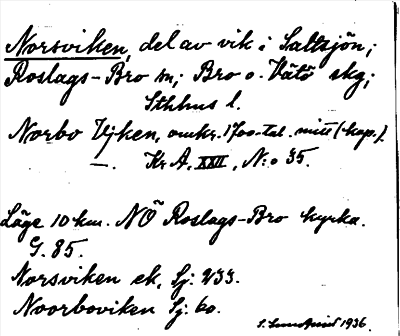 Norsviken, del av vik i Saltsjön;
Roslags-Bro sn; Bro o. Vätö skg;
Sthlms l.
Norbo Vjken, omkr. 1700-tal. mitt (kop.).
—. Kr A, XXII, N:o 35.
Läge 10 km. NÖ Roslags-Bro kyrka.
G. 85.
Norsviken ek, Sj: 233.
Noorboviken Sj: 60.
S. Lundqvist 1936.